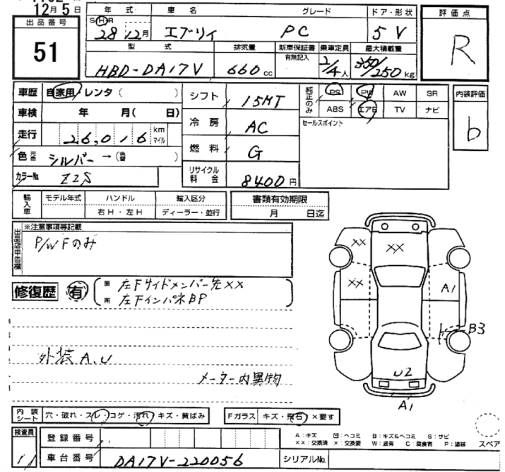 12月5日
出品番号
51
年 式
グレード
ドア・形状
S H R
28年12月
エブリイ
PC
5 V
評価点
R
型 式
排気量
新車保証書
乗車定員
最大積載量
有無記入
HBD-DA17V
660cc
2/4人
350/250kg
車歴
自家用・レンタ( )
車検
年 月( 日)
走行
26,016 km マイル
色
シルバー → (替 )
カラーNo.
Z2S
シフト
15MT
冷房
AC
燃料
G
リサイクル料金
8400円
純正のみ
PS PW AW SR
ABS エアB TV ナビ
セールスポイント
内装評価
b
輸入車
モデル年式
ハンドル
右H・左H
輸入区分
ディーラー・並行
書類有効期限
月 日迄
※注意事項等記載
P/WFのみ
修復歴
有
左Fサイドメンバー先××
左FインパネBP
外装A.U
メーター内異物
×× ×× ××
A1
B3
U2
A1
内装シート
穴・破れ・スレ・コゲ・汚れ・キズ・黄ばみ
Fガラス
キズ・飛石・×要す
検査員
登録番号
車台番号
DA17V-220056
シリアルNo.
A:キズ
スペア